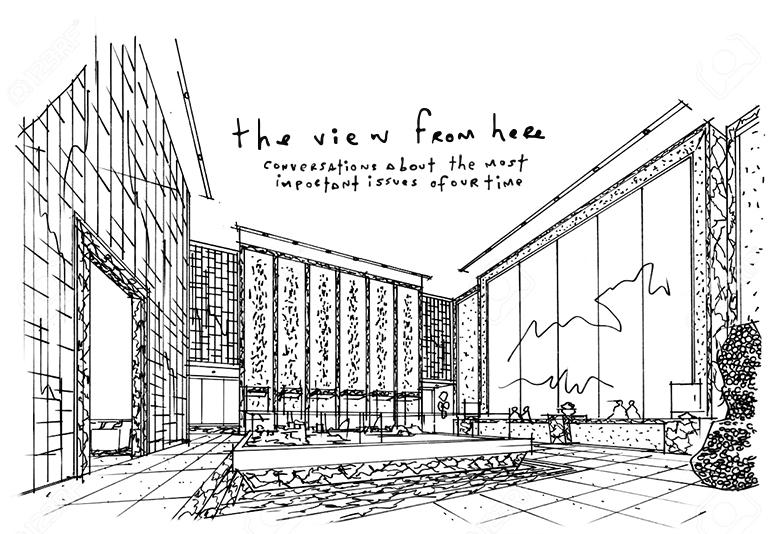 the view from here
conversations about the most
important issues of our time
123RF